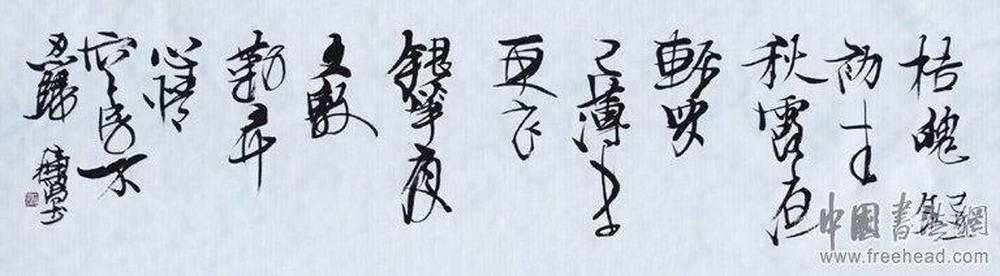 桂魄
初生
秋露微
輕羅
已薄未
更衣
銀箏夜
久殷
勤弄
心情
空房不
忍歸
中國書法網
www.freehead.com